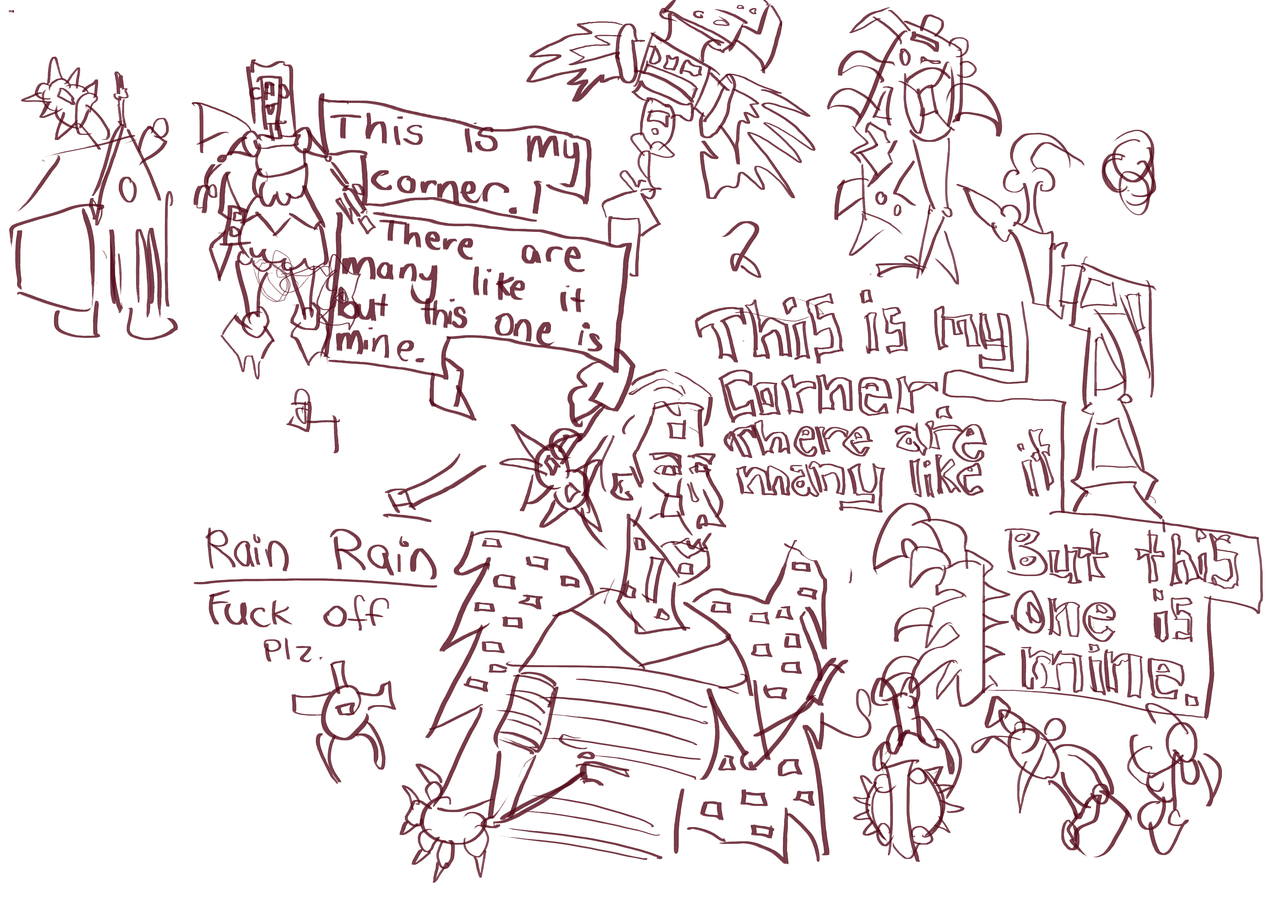 This is my
corner.!
There are
many like it
but this one is
mine.
2
This is my
Corner
there are
many like it
But this
One is
mine.
Rain Rain
Fuck off
Plz.